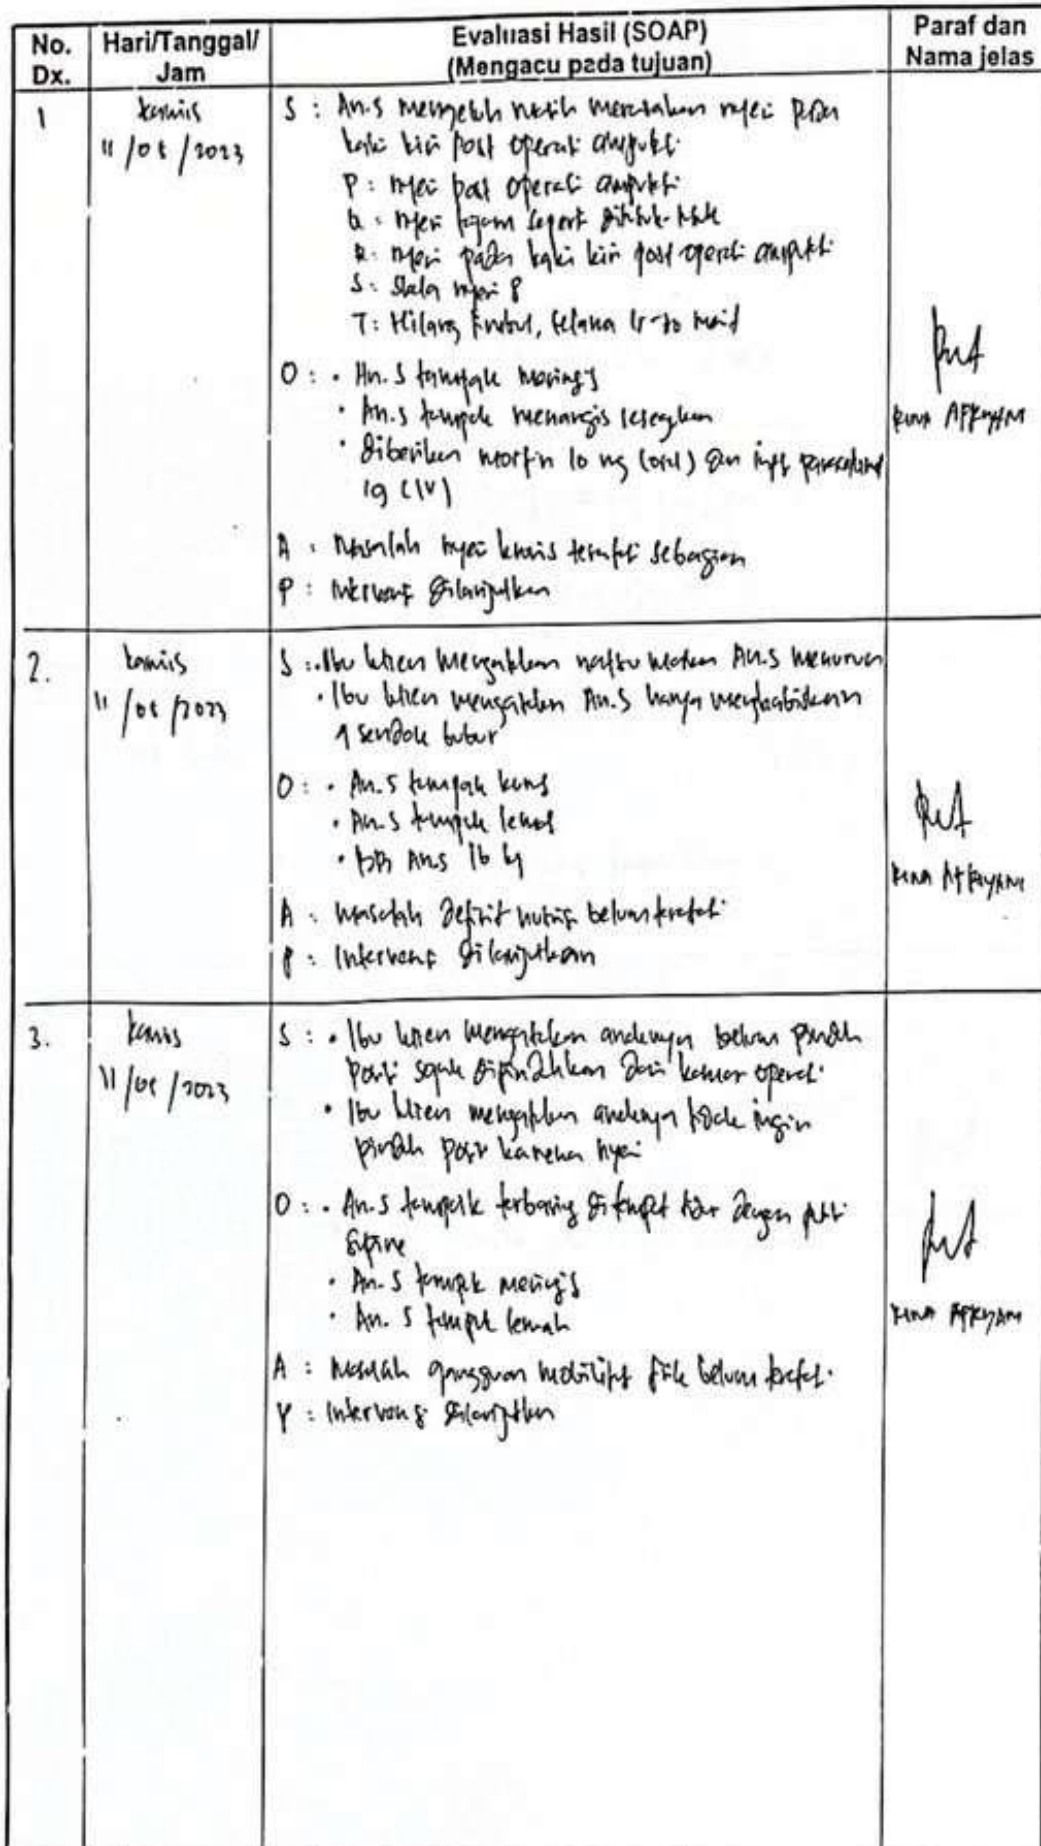 No. Dx.
Hari/Tanggal/ Jam
Evaluasi Hasil (SOAP)
(Mengacu pada tujuan)
Paraf dan Nama jelas
1
Kamis
11/05/2023
S : An.S mengeluh masih merasakan nyeri pada
kaki kiri post operasi amputasi
P : nyeri post operasi amputasi
Q : nyeri tajam seperti ditusuk-tusuk
R : nyeri pada kaki kiri post operasi amputasi
S : Skala nyeri 8
T : Hilang timbul, selama menit
O : • An.S tampak meringis
• An.S tampak menangis
• diberikan morfin 10 mg (oral) dan inf paracetamol
1g (IV)
A : Masalah nyeri kronis teratasi sebagian
P : Intervensi dilanjutkan
2.
Kamis
11/05/2023
S : • Ibu klien mengatakan nafsu makan An.S menurun
• Ibu klien mengatakan An.S hanya menghabiskan
sendok bubur
O : • An.S tampak kurus
• An.S tampak lemas
• BB An.S 16 kg
A : Masalah defisit nutrisi belum teratasi
P : Intervensi dilanjutkan
3.
Kamis
11/05/2023
S : • Ibu klien mengatakan anaknya belum pindah
posisi sejak dipindahkan dari kamar operasi
• Ibu klien mengatakan anaknya tidak ingin
pindah posisi karena nyeri
O : • An.S tampak terbaring ditempat tidur dengan posisi
supine
• An.S tampak meringis
• An.S tampak lemah
A : Masalah gangguan mobilitas fisik belum teratasi
P : Intervensi dilanjutkan